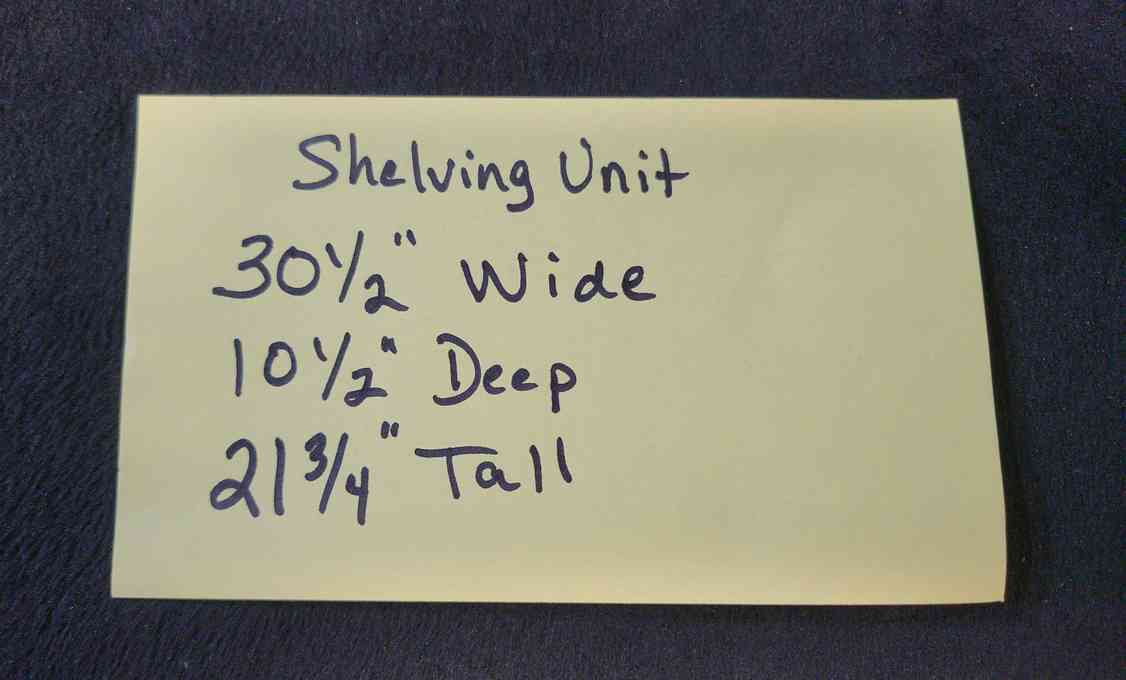 Shelving Unit
30 1/2" Wide
10 1/2" Deep
21 3/4" Tall